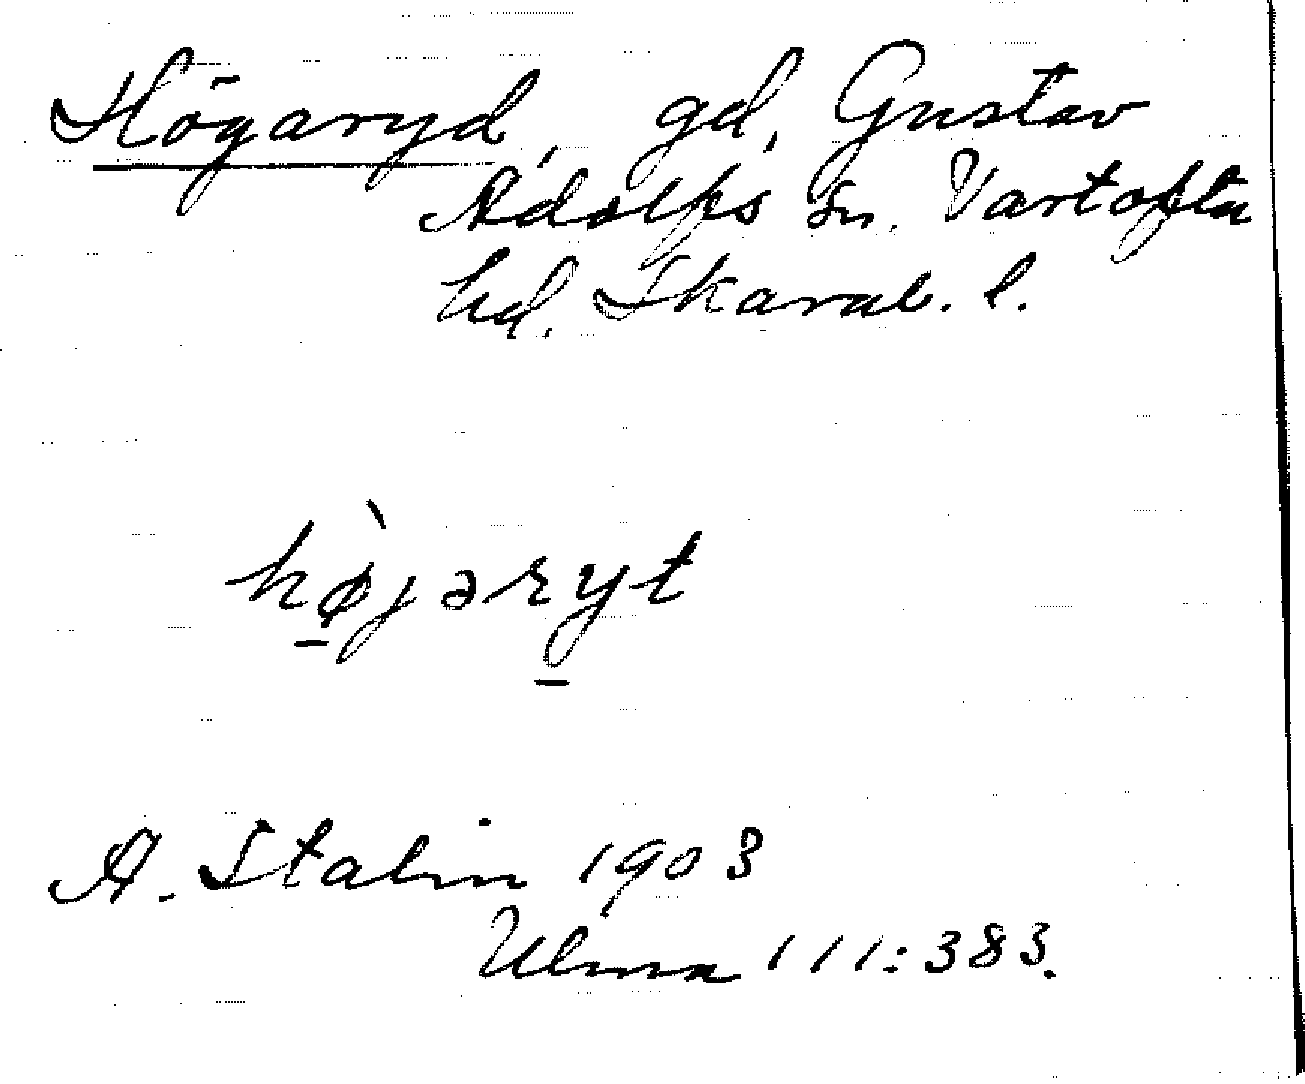 Högaryd, gd, Gustav
Adolfs sn. Vartofta
hd. Skarab. l.
hø̀jəryt
A. Stalin 1903
Ulma 111:383.